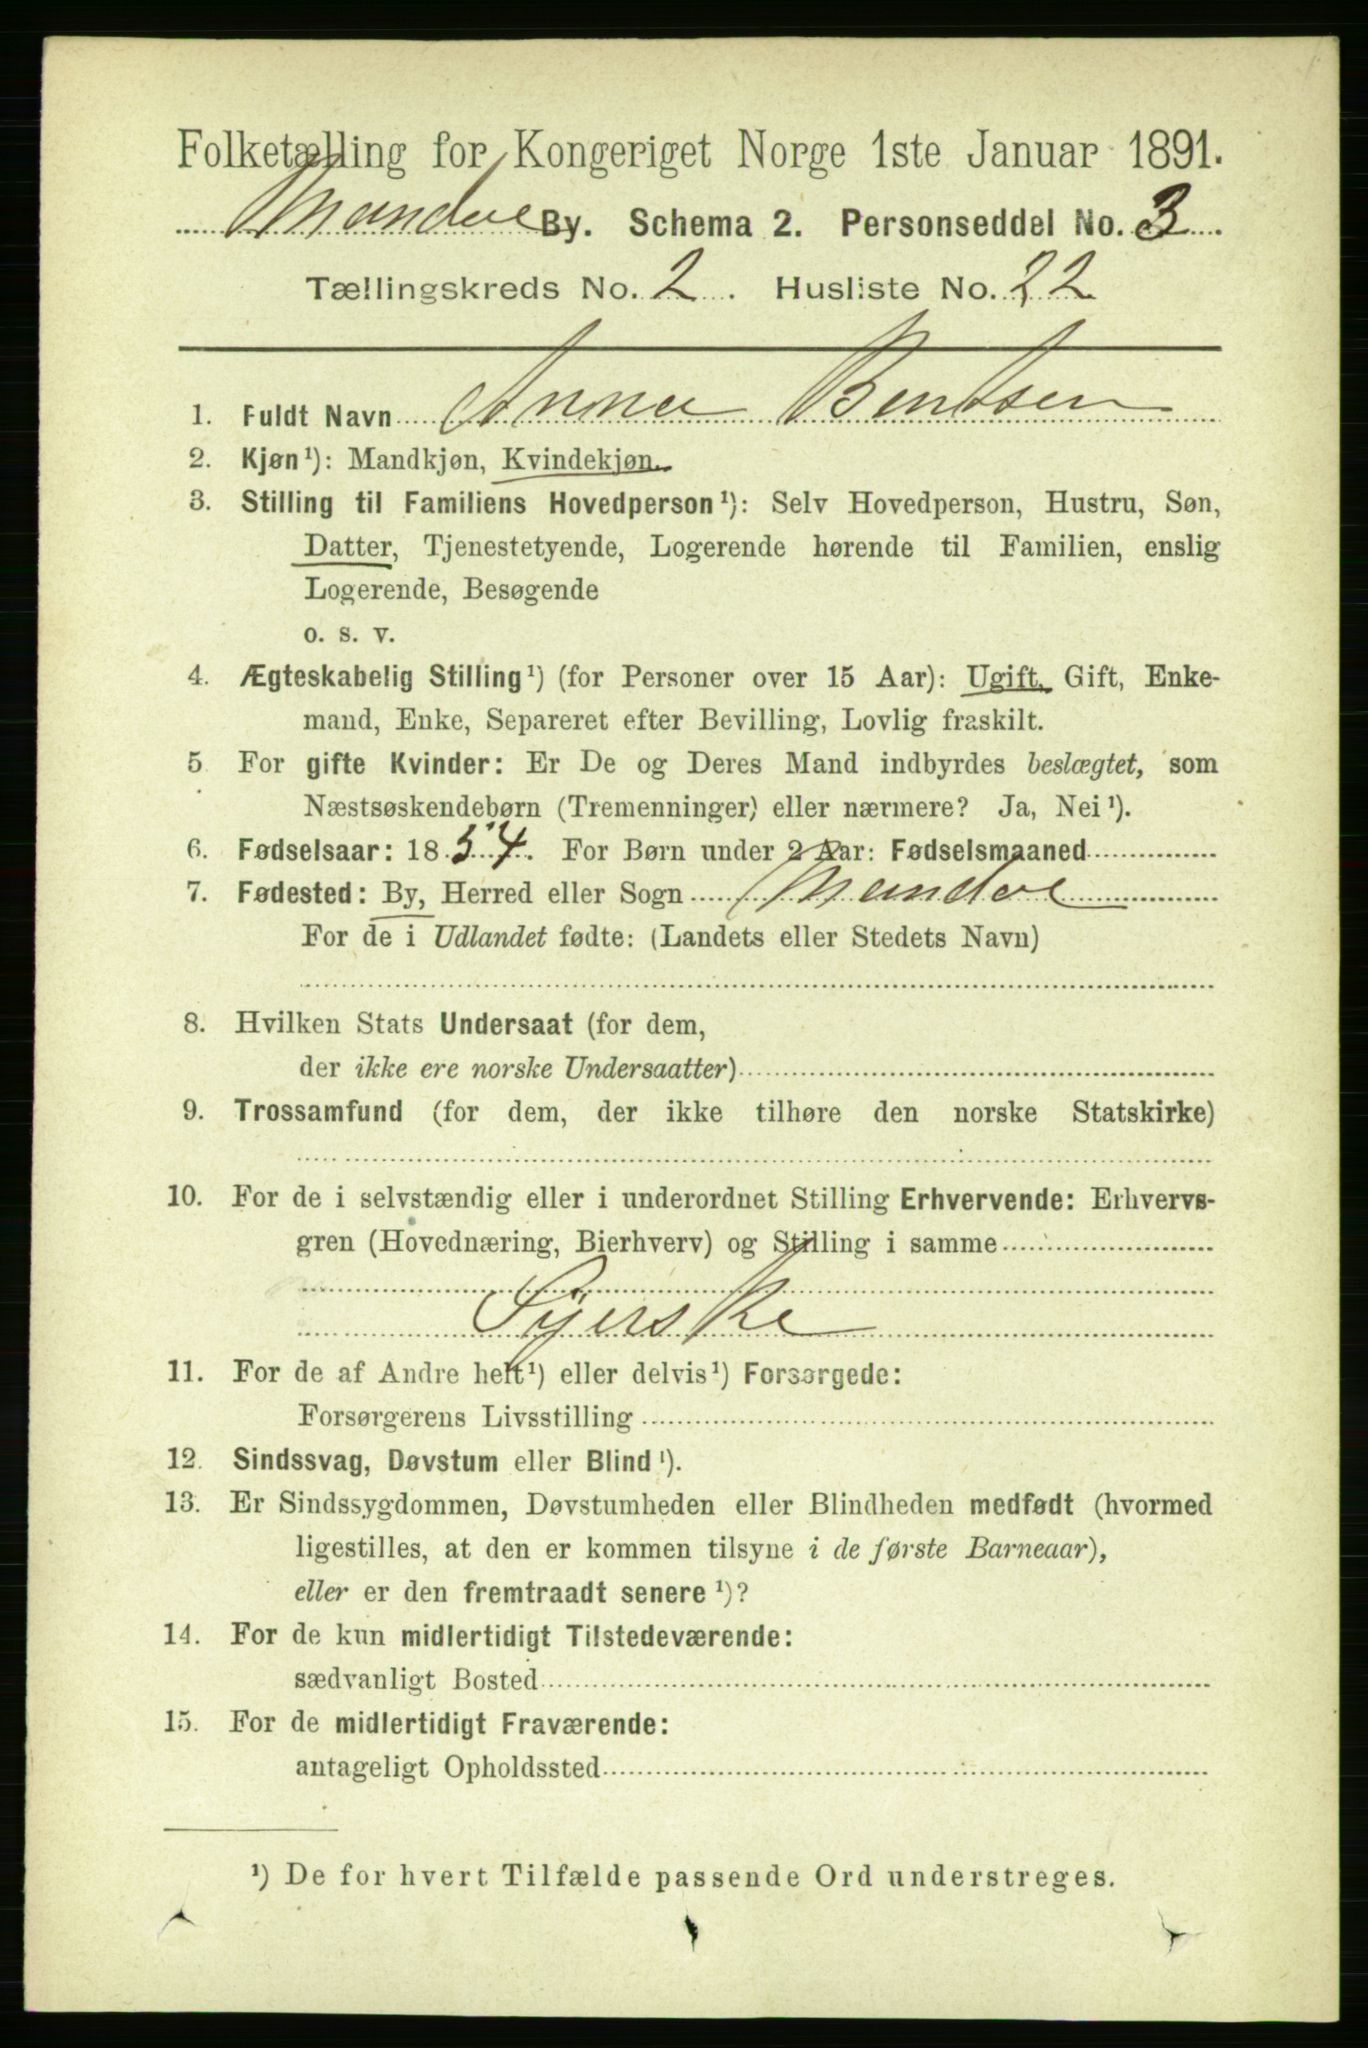 Folketælling for Kongeriget Norge 1ste Januar 1891.
Mandal By. Schema 2. Personseddel No. 3
Tællingskreds No. 2. Husliste No. 22
1. Fuldt Navn Anna Bentsen
2. Kjøn¹): Mandkjøn, Kvindekjøn.
3. Stilling til Familiens Hovedperson¹): Selv Hovedperson, Hustru, Søn,
Datter, Tjenestetyende, Logerende hørende til Familien, enslig
Logerende, Besøgende
o. s. v.
4. Ægteskabelig Stilling¹) (for Personer over 15 Aar): Ugift, Gift, Enke-
mand, Enke, Separeret efter Bevilling, Lovlig fraskilt.
5. For gifte Kvinder: Er De og Deres Mand indbyrdes beslægtet, som
Næstsøskendebørn (Tremenninger) eller nærmere? Ja, Nei¹).
6. Fødselsaar: 1854. For Børn under 2 Aar: Fødselsmaaned
7. Fødested: By, Herred eller Sogn Mandal
For de i Udlandet fødte: (Landets eller Stedets Navn)
8. Hvilken Stats Undersaat (for dem,
der ikke ere norske Undersaatter)
9. Trossamfund (for dem, der ikke tilhøre den norske Statskirke)
10. For de i selvstændig eller i underordnet Stilling Erhvervende: Erhvervs-
gren (Hovednæring, Bierhverv) og Stilling i samme
Syerske
11. For de af Andre helt¹) eller delvis¹) Forsørgede:
Forsørgerens Livsstilling
12. Sindssvag, Døvstum eller Blind¹).
13. Er Sindssygdommen, Døvstumheden eller Blindheden medfødt (hvormed
ligestilles, at den er kommen tilsyne i de første Barneaar),
eller er den fremtraadt senere¹)?
14. For de kun midlertidigt Tilstedeværende:
sædvanligt Bosted
15. For de midlertidigt Fraværende:
antageligt Opholdssted
¹) De for hvert Tilfælde passende Ord understreges.